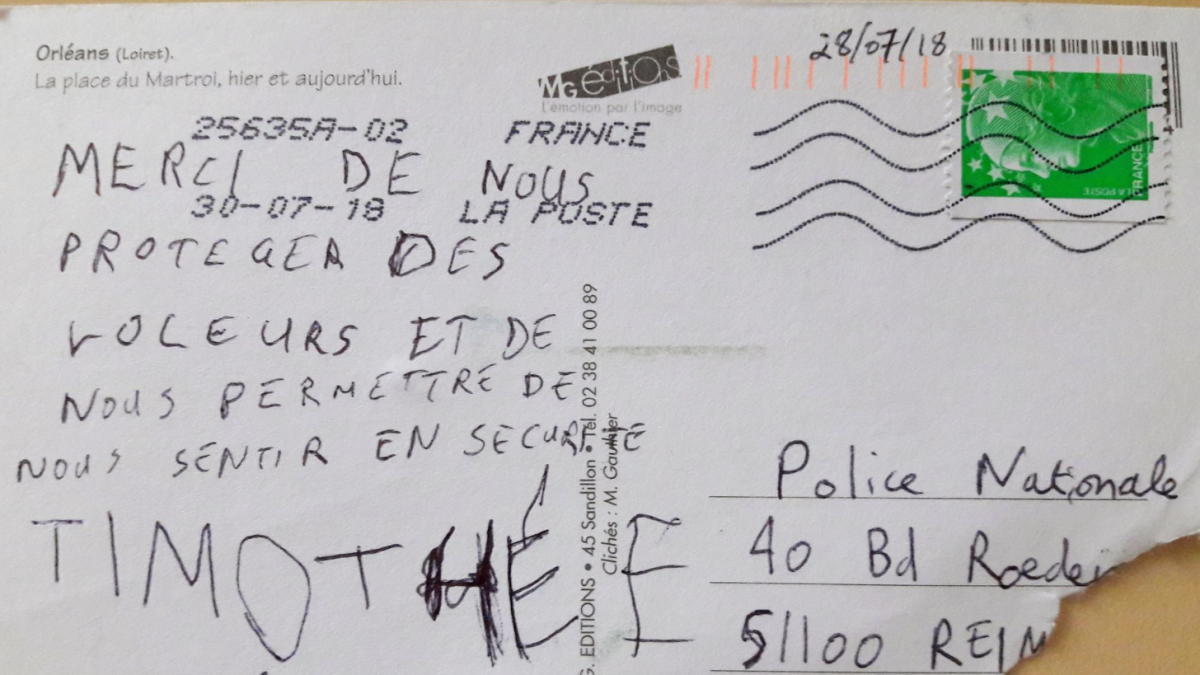 Orléans (Loiret).
La place du Martroi, hier et aujourd'hui.
MG éditions
L'émotion par l'image
28/07/18
25635A-02 FRANCE
30-07-18 LA POSTE
LA POSTE
FRANCE
MERCI DE NOUS
PROTEGER DES
VOLEURS ET DE
NOUS PERMETTRE DE
NOUS SENTIR EN SECURITIE
TIMOTHÉE
G. EDITIONS • 45 Sandillon • Tél. 02 38 41 00 89
Clichés : M. Gauthier
Police Nationale
40 Bd
51100 REIM